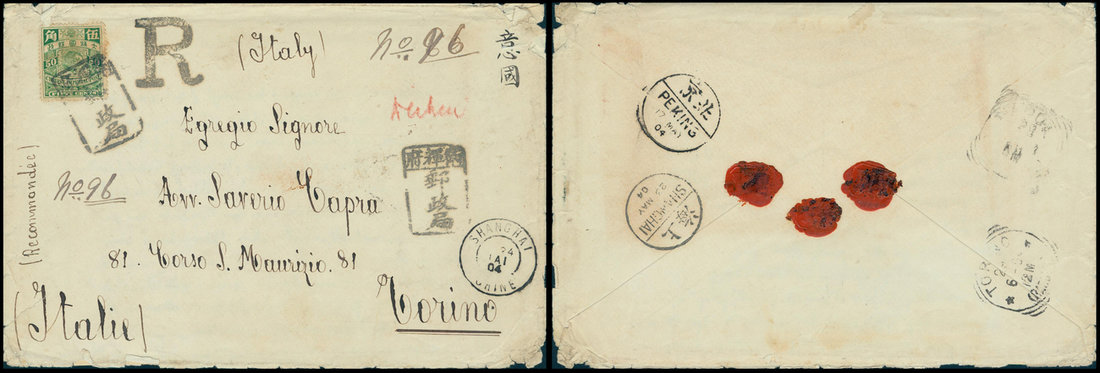 伍 角
50
R
(Italy)
No. 96
意國
政局
Egregio Signore
No. 96
Avv. Saverio Capra
衛輝府
郵政局
(Recommandée)
81. Corso S. Maurizio. 81
SHANGHAI
24
MAI
04
CHINE
(Italie)
Torino
北京
PEKING
17 MAY
04
SHANGHAI
MAY
04
上海
TOR
12M